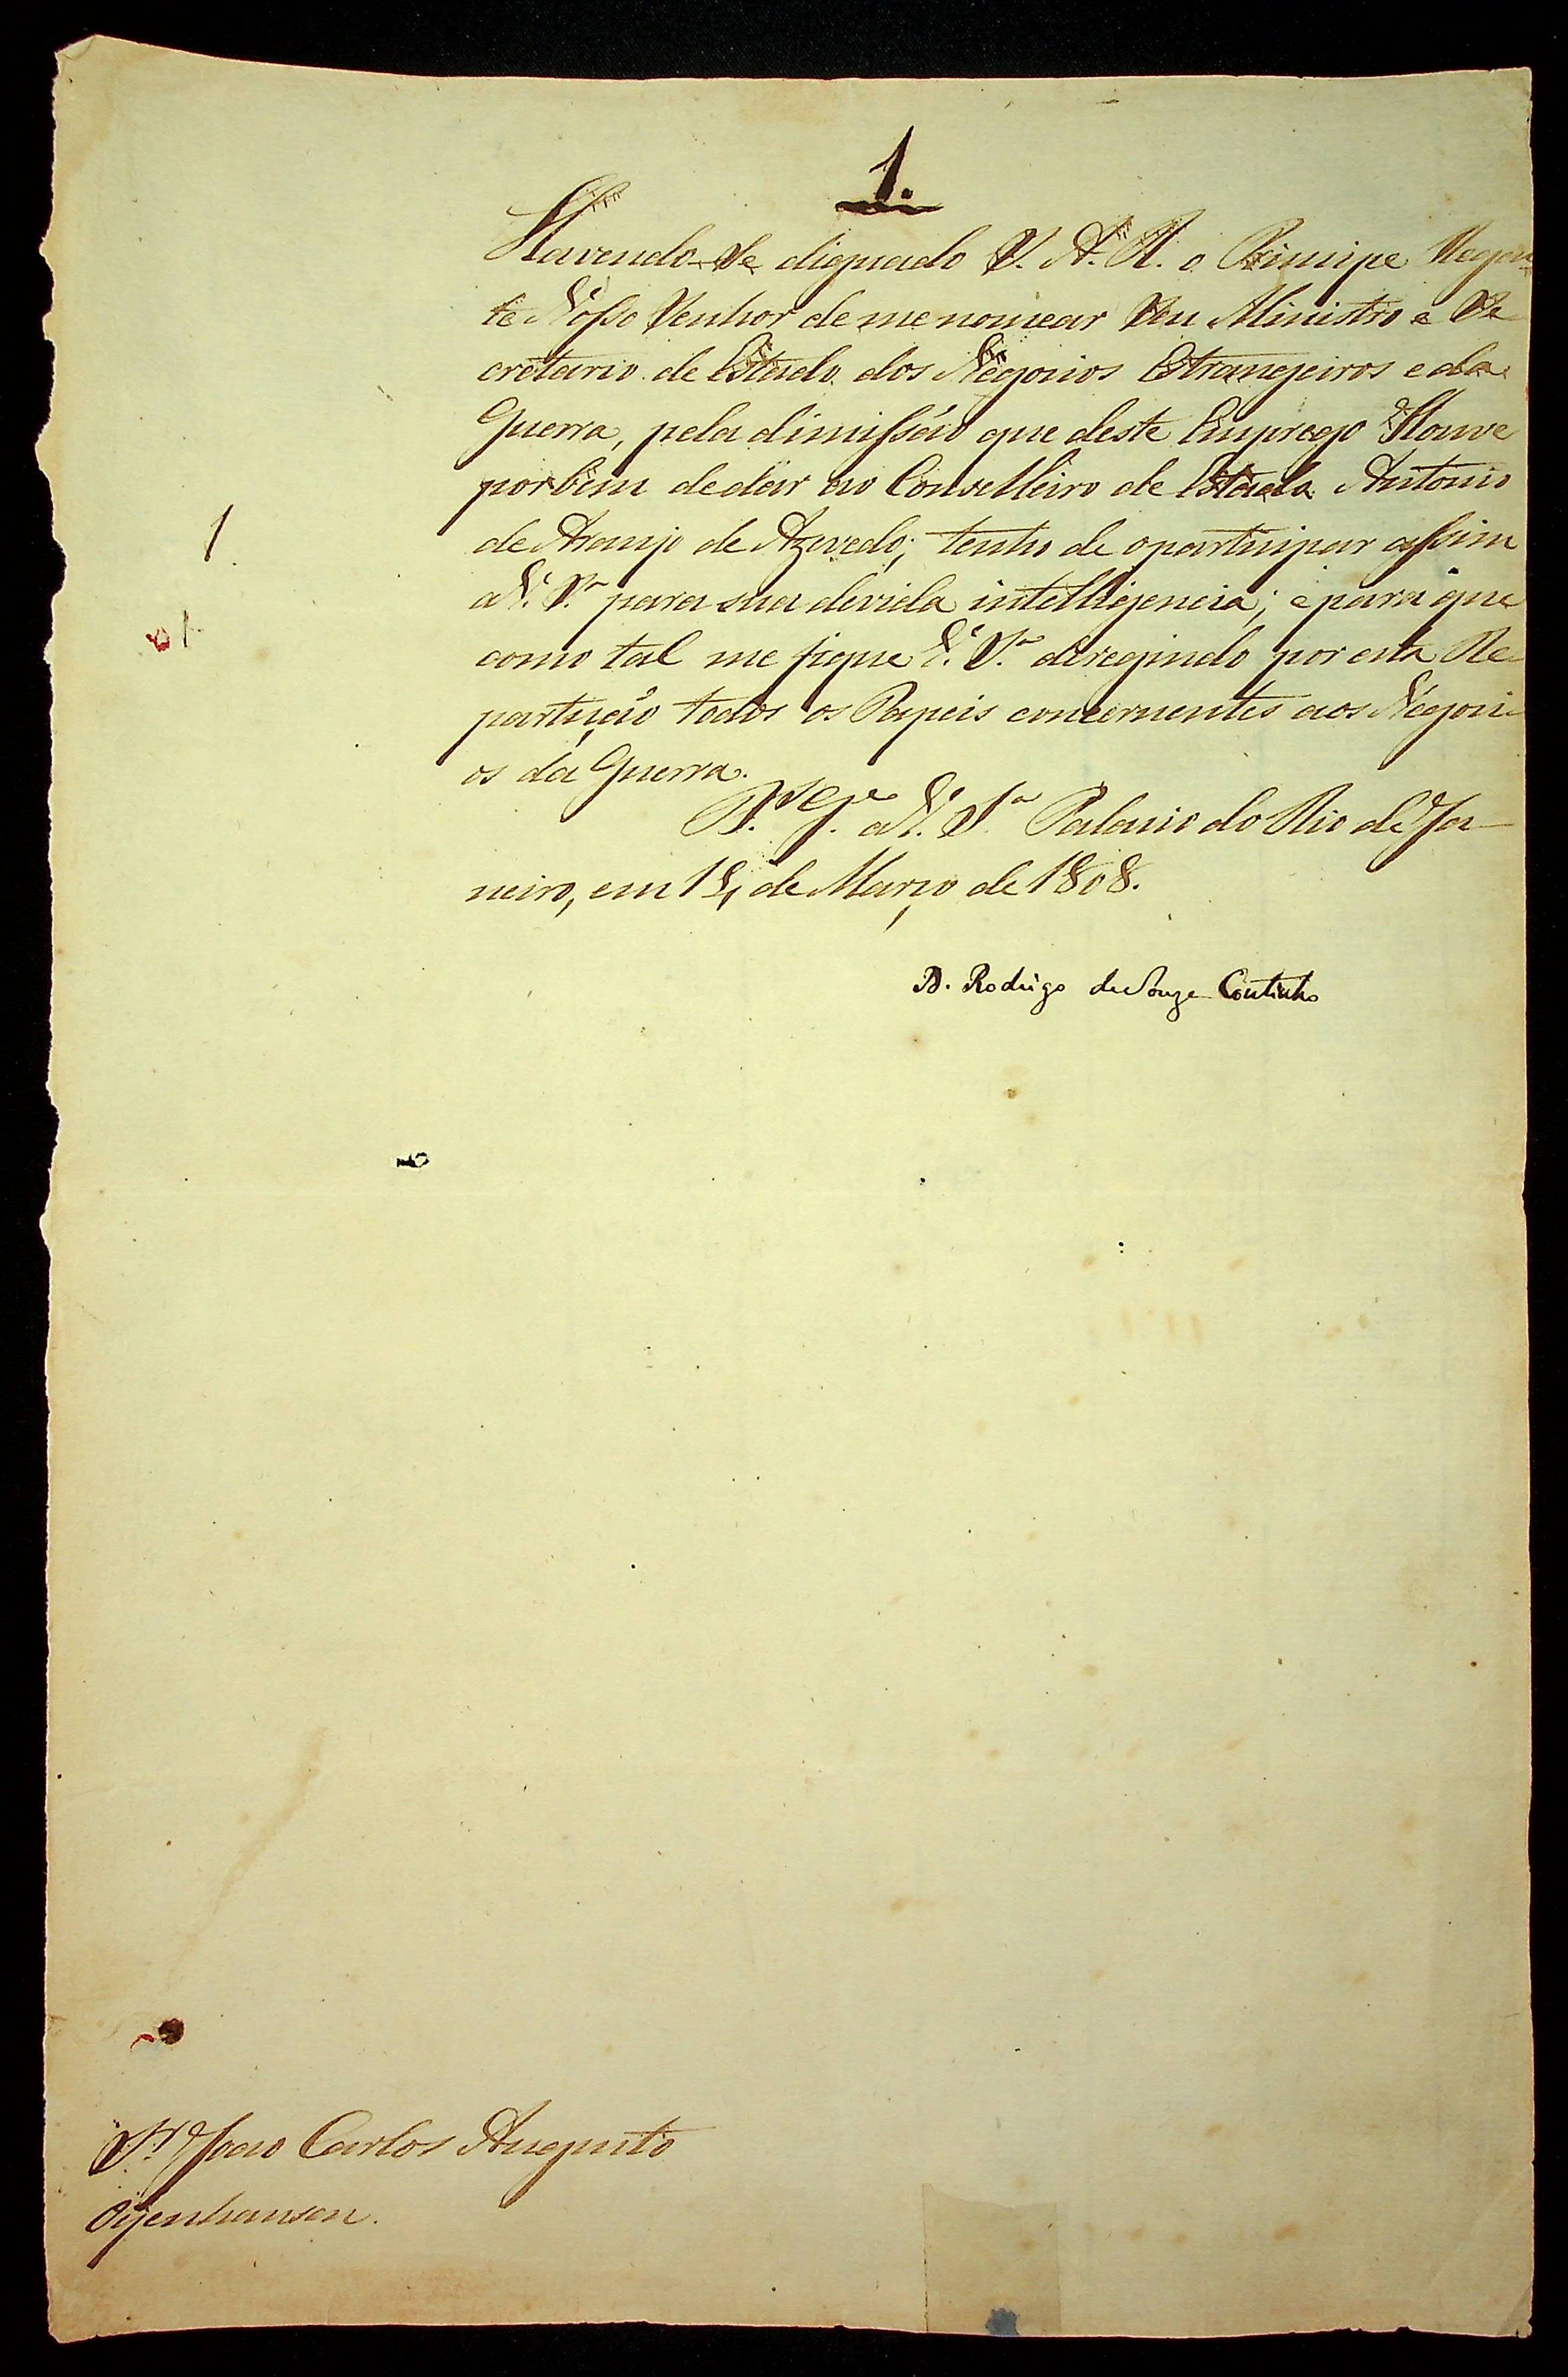 1.
Havendo-Se dignado S. A. R. o Principe Regen-
te Nosso Senhor de me nomear Seu Ministro e Se-
cretario de Estado dos Negocios Estrangeiros e da
Guerra, pela dimissão que deste Emprego Houve
por bem de dar ao Conselheiro de Estado Antonio
de Araujo de Azevedo; tenho de o participar assim
a V. S.ª para sua devida intelligencia; e para que
como tal me fique V. S.ª deregindo por esta Re-
partição todos os Papeis concernentes aos Negoci-
os da Guerra.
D.s G.e a V. S.ª Palacio do Rio de Ja-
neiro, em 14 de Março de 1808.
D. Rodrigo de Souza Coutinho
1.
1
S.r João Carlos Augusto
Oÿenhausen.